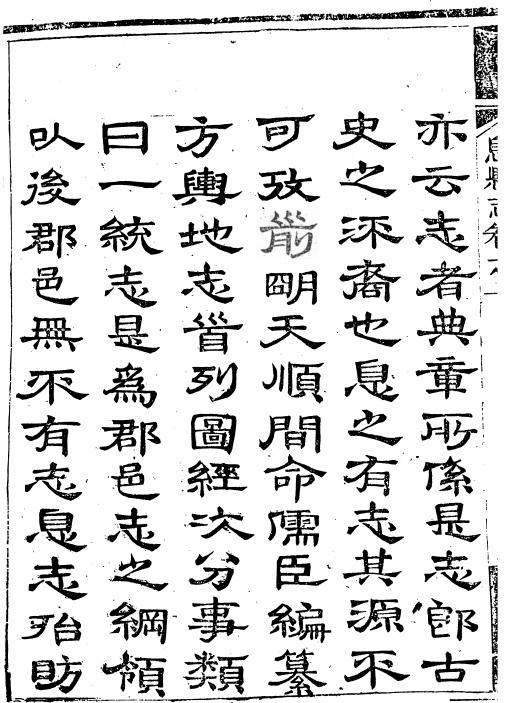 息縣志卷六
亦云志者典章所係是志郎古
史之流裔也息之有志其源不
可攷前朙天順間命儒臣編纂
方輿地志首列圖經次分事類
曰一統志是爲郡邑志之綱領
㠯後郡邑無不有志息志殆昉